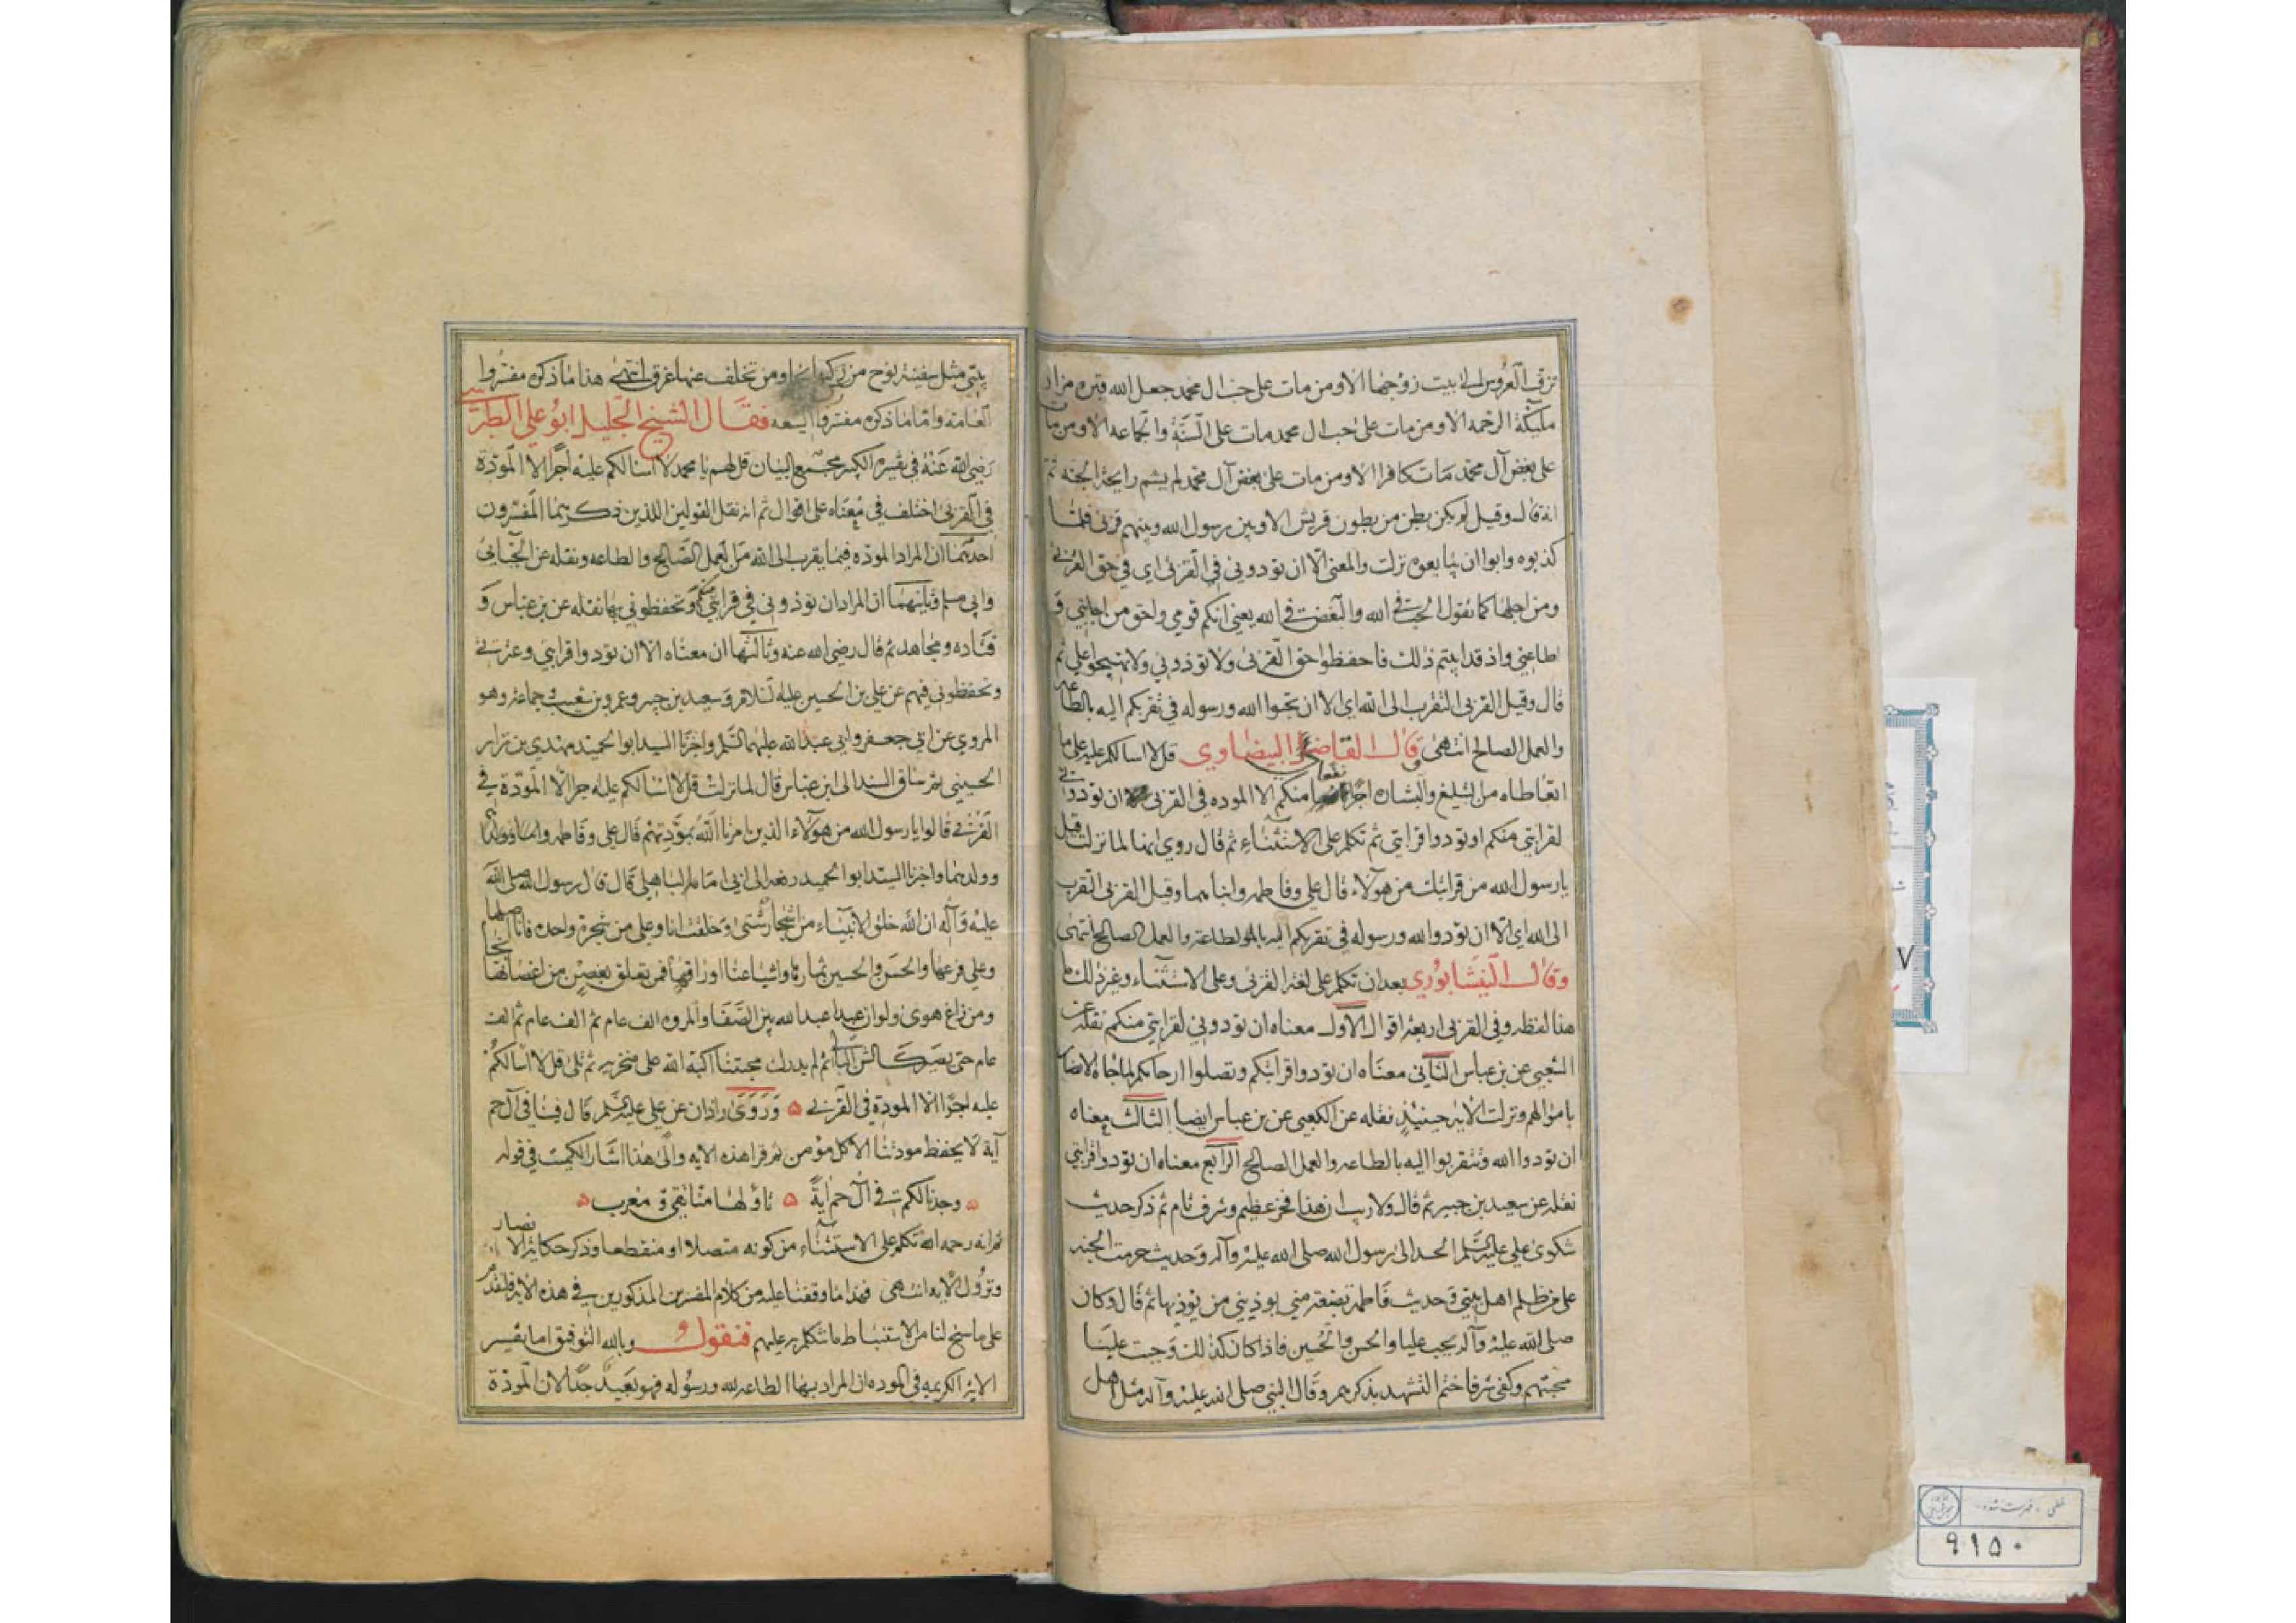 تزف العروس الى بيت زوجها الا ومن مات على حب ال محمد جعل الله قبره مزار
ملئكة الرحمه الا ومن مات على حب ال محمد مات على السنة والجماعه الا ومن مات
على بغض آل محمد مات كافرا الا ومن مات على بغض آل محمد لم يشم رايحة الجنه ثم
انه قال وقيل لم يكن بطن من بطون قريش الا وبين رسول الله وبينهم قربى فلما
كذبوه وابوا ان يبايعوه نزلت والمعنى الا ان تودوني في القربى اي في حق القربى
ومن اجلها كما تقول الحب في الله والبغض في الله يعني انكم قومي واحق من اجابني و
اطاعني واذ قد ابيتم ذلك فاحفظوا حق القربى ولا توذوني ولا تهيجوا علي ثم
قال وقيل القربى التقرب الى الله اي الا ان تحبوا الله ورسوله في تقربكم اليه بالطاعه
والعمل الصالح انتهى وقال القاضي البيضاوي قل لا اسالكم عليه على ما
اتعاطاه من التبليغ والبشاره اجرا نفعا منكم الا الموده في القربى ان تودوني
لقرابتي منكم او تودوا قرابتي ثم تكلم على الاستثناء ثم قال روي انها لما نزلت قيل
يا رسول الله من قرابتك من هولاء قال علي وفاطمه وابناهما وقيل القربى التقرب
الى الله اي الا ان تودوا الله ورسوله في تقربكم اليه بالطاعة والعمل الصالح انتهى
وقال النيشابوري بعد ان تكلم على لغة القربى وعلى الاستثناء وغير ذلك ما
هذا لفظه وفي القربى اربعة اقوال الاول معناه ان تودوني لقرابتي منكم نقله عن
الشعبي عن بن عباس الثاني معناه ان تودوا قرابتكم وتصلوا ارحامكم لما جاه الانصار
باموالهم ونزلت الايه حينيذ نقله عن الكعبي عن بن عباس ايضا الثالث معناه
ان تودوا الله وتتقربوا اليه بالطاعه والعمل الصالح الرابع معناه ان تودوا قرابتي
نقله عن سعيد بن جبير ثم قال ولا ريب ان هذا فخر عظيم وشرف تام ثم ذكر حديث
شكوى علي عليه السلم الحسد الى رسول الله صلى الله عليه وآله وحديث حرمت الجنه
على من ظلم اهل بيتي وحديث فاطمة بضعة مني يوذيني من يوذيها ثم قال وكان
صلى الله عليه وآله يحب عليا والحسن والحسين فاذا كان كذلك وجبت علينا
محبتهم وكفى شرفا ختم التشهد بذكرهم وقال النبي صلى الله عليه وآله مثل اهل
بيتي مثل سفينة نوح من ركبها نجا ومن تخلف عنها غرق انتهى هذا ما ذكره مفسروا
العامه واما ما ذكره مفسروا الشيعه فقال الشيخ الجليل ابو علي الطبرسي
رضي الله عنه في تفسيره الكبير مجمع البيان قل لهم يا محمد لا اسالكم عليه اجرا الا المودة
في القربى اختلف في معناه على اقوال ثم انه نقل القولين اللذين ذكرهما المفسرون
احدهما ان المراد الموده فيما يقرب الى الله من العمل الصالح والطاعه ونقله عن الجبائي
وابي مسلم وثانيهما ان المراد ان تودوني في قرابتي منكم وتحفظوني بها نقله عن بن عباس و
قتاده ومجاهد ثم قال رضي الله عنه وثالثها ان معناه الا ان تودوا قرابتي وعترتي
وتحفظوني فيهم عن علي بن الحسين عليه السلام وسعيد بن جبير وعمرو بن شعيب وجماعة وهو
المروي عن ابي جعفر وابي عبد الله عليهما السلم واخبرنا السيد ابو الحميد مهدي بن نزار
الحسيني ثم ساق السند الى ابن عباس قال لما نزلت قل لا اسالكم عليه اجرا الا المودة في
القربى قالوا يا رسول الله من هولاء الذين امرنا الله بمودتهم قال علي وفاطمه
وولدهما واخبرنا السيد ابو الحميد رفعه الى ابي امامة الباهلي قال قال رسول الله صلى الله
عليه وآله ان الله خلق الانبياء من اشجار شتى وخلقت انا وعلي من شجرة واحده فانا اصلها
وعلي فرعها والحسن والحسين ثمارها واشياعنا اوراقها فمن تعلق بغصن من اغصانها نجا
ومن زاغ هوى ولو ان عبدا عبد الله بين الصفا والمروه الف عام ثم الف عام ثم الف
عام حتى يصير كالشن البالي ثم لم يدرك محبتنا اكبه الله على منخريه ثم تلى قل لا اسالكم
عليه اجرا الا المودة في القربى ۵ وروى زاذان عن علي عليه السلم قال فينا في آل حم
آية لا يحفظ مودتنا الا كل مؤمن ثم قرا هذه الايه والى هذا اشار الكميت في قوله
۵ وجدنا لكم في آل حم آية ۵ تاولها منا تقي ومعرب ۵
ثم انه رحمه الله تكلم على الاستثناء من كونه متصلا او منقطعا وذكر حكاية الانصار
ونزول الايه انتهى فهذا ما وقفنا عليه من كلام المفسرين المذكورين في هذه الايه فلنقدم
على ما سنح لنا من الاستنباط ما نتكلم به عليهم فنقول وبالله التوفيق اما تفسير
الايه الكريمه في الموده ان المراد بها الطاعه لله ورسوله فهو بعيد جدا لان المودة
خطی - فهرست شده
۹۱۵۰
۷